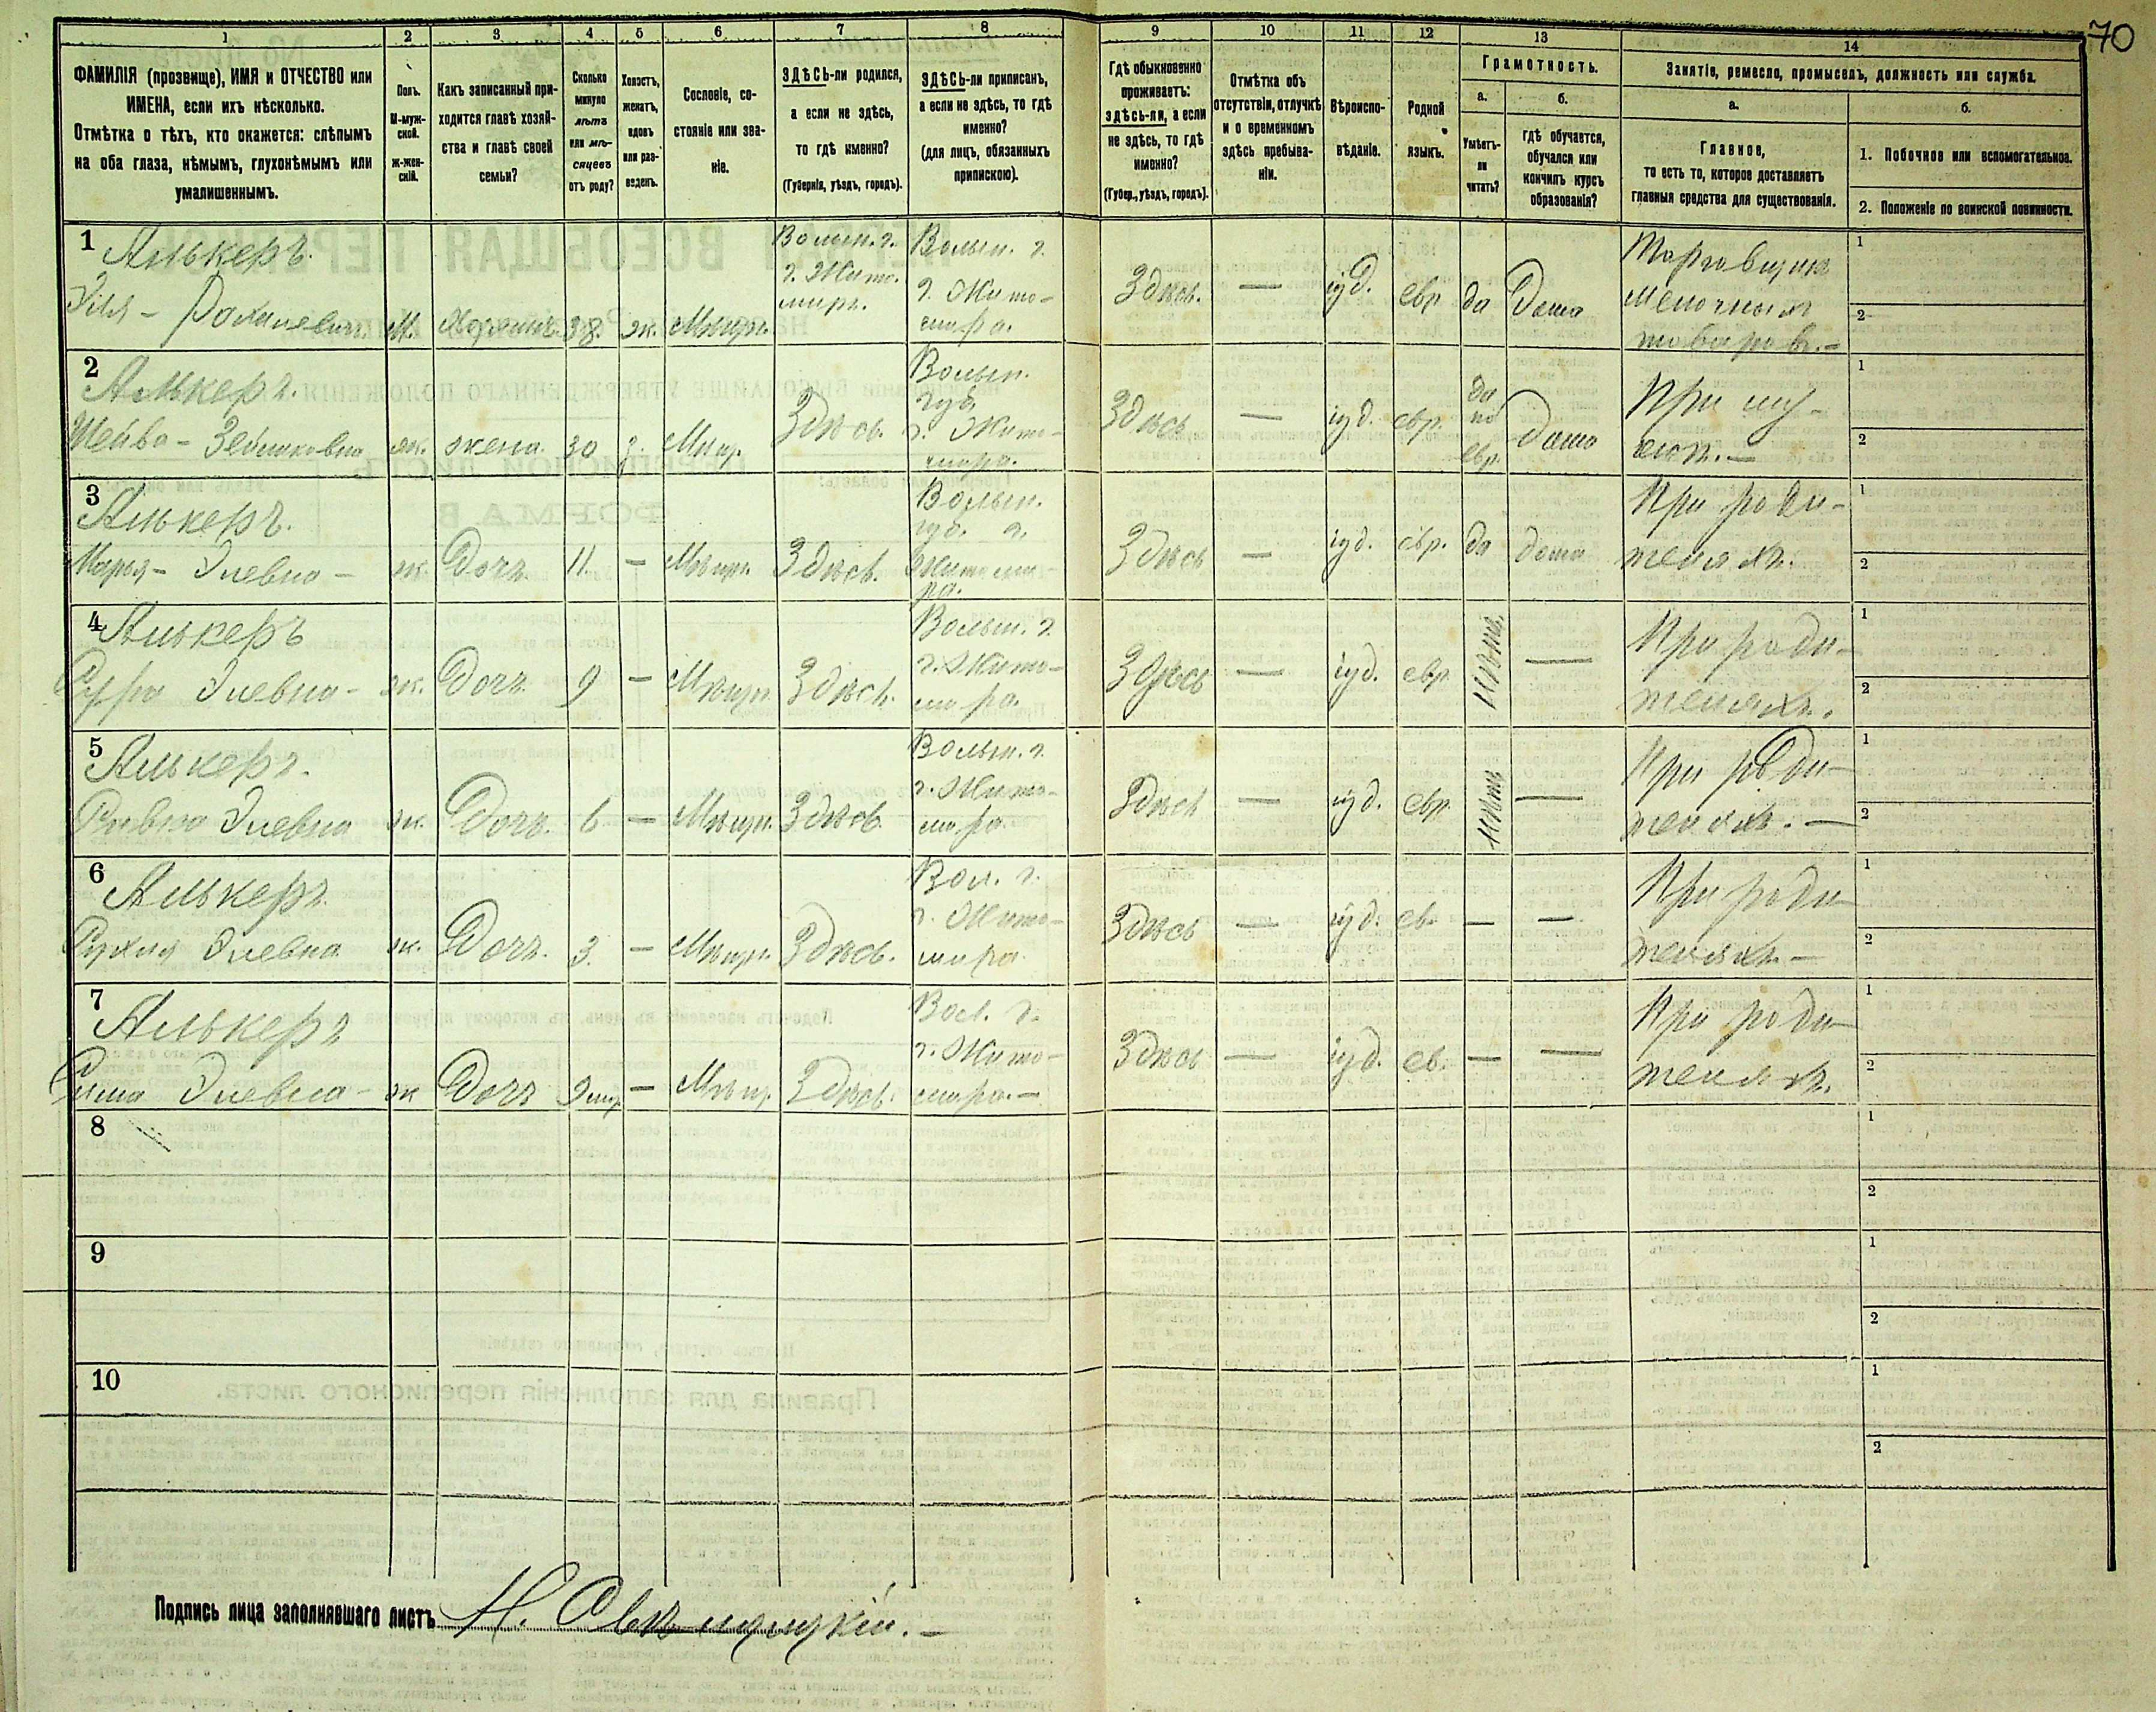 70
1 2 3 4 5 6 7 8 9 10 11 12 13 14
ФАМИЛІЯ (прозвище), ИМЯ и ОТЧЕСТВО или
ИМЕНА, если ихъ нѣсколько.
Отмѣтка о тѣхъ, кто окажется: слѣпымъ
на оба глаза, нѣмымъ, глухонѣмымъ или
умалишеннымъ.
Полъ.
М-муж-
ской.
ж-жен-
скій.
Какъ записанный при-
ходится главѣ хозяй-
ства и главѣ своей
семьи?
Сколько
минуло
лѣтъ
или мѣ-
сяцевъ
отъ роду?
Холостъ,
женатъ,
вдовъ
или раз-
веденъ.
Сословіе, со-
стояніе или зва-
ніе.
ЗДѢСЬ-ли родился,
а если не здѣсь,
то гдѣ именно?
(Губернія, уѣздъ, городъ).
ЗДѢСЬ-ли приписанъ,
а если не здѣсь, то гдѣ
именно?
(для лицъ, обязанныхъ
припискою).
Гдѣ обыкновенно
проживаетъ:
здѣсь-ли, а если
не здѣсь, то гдѣ
именно?
(Губер., уѣздъ, городъ).
Отмѣтка объ
отсутствіи, отлучкѣ
и о временномъ
здѣсь пребыва-
ніи.
Вѣроиспо-
вѣданіе.
Родной
языкъ.
Грамотность.
а.
Умѣетъ-
ли
читать?
б.
гдѣ обучается,
обучался или
кончилъ курсъ
образованія?
Занятіе, ремесло, промыселъ, должность или служба.
а.
Главное,
то есть то, которое доставляетъ
главныя средства для существованія.
б.
1. Побочное или вспомогательное.
2. Положеніе по воинской повинности.
1
Алькеръ.
Эля - М. Хозяинъ 38. ж. Мѣщ.
Волын. г.
г. Жито-
миръ.
Волын. г.
г. Жито-
мира.
Здѣсь. — іуд. евр да Дома
Торговецъ
мелочныхъ
товаровъ.-
1
2
2
Алькеръ.
Шейва - ж. жена 30 з. Мѣщ. Здѣсь.
Волын.
губ.
г. Жито-
мира.
Здѣсь — іуд. евр.
да
по
евр.
Дома
При му-
жѣ.—
1
2
3
Алькеръ.
Марья - Элевна - ж. Дочь. 11. — Мѣщ. Здѣсь.
Волын.
губ. г.
Житоми-
ра.
Здѣсь — іуд. евр. да дома
При роди-
теляхъ.
1
2
4
Алькеръ
Сура Элевна - ж. Дочь. 9 — Мѣщ. Здѣсь.
Волын. г.
г. Жито-
мира.
Здѣсь — іуд. евр. —
При роди-
теляхъ.
1
2
5
Алькеръ.
Ривка Элевна ж. Дочь. 6 — Мѣщ. Здѣсь.
Волын. г.
г. Жито-
мира.
Здѣсь — іуд. евр. —
При роди-
теляхъ. —
1
2
6
Алькеръ.
Рухля Элевна ж. Дочь. 3. — Мѣщ. Здѣсь.
Вол. г.
г. Жито-
мира.
Здѣсь — іуд. ев. — —
При роди-
теляхъ.—
1
2
7
Алькеръ
Элевна - ж Дочь 9 мѣс — Мѣщ. Здѣсь.
Вол. г.
г. Жито-
мира.—
Здѣсь — іуд. ев. — —
При роди-
теляхъ.
1
2
8
1
2
9
1
2
10
1
2
Подпись лица заполнявшаго листъ Н.